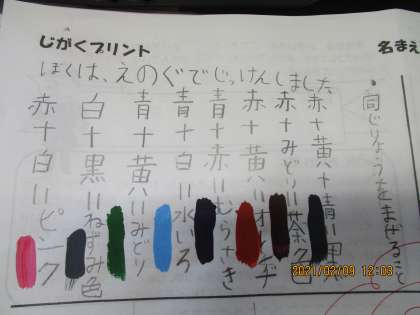 じがくプリント
名まえ
ぼくは、えのぐでじっけんしました
・同じりょうをまぜること
赤+黄+青=黒
赤+みどり=茶色
赤+黄=オレンジ
青+赤=むらさき
青+白=水いろ
青+黄=みどり
白+黒=ねずみ色
赤+白=ピンク
2021/02/09 12:03